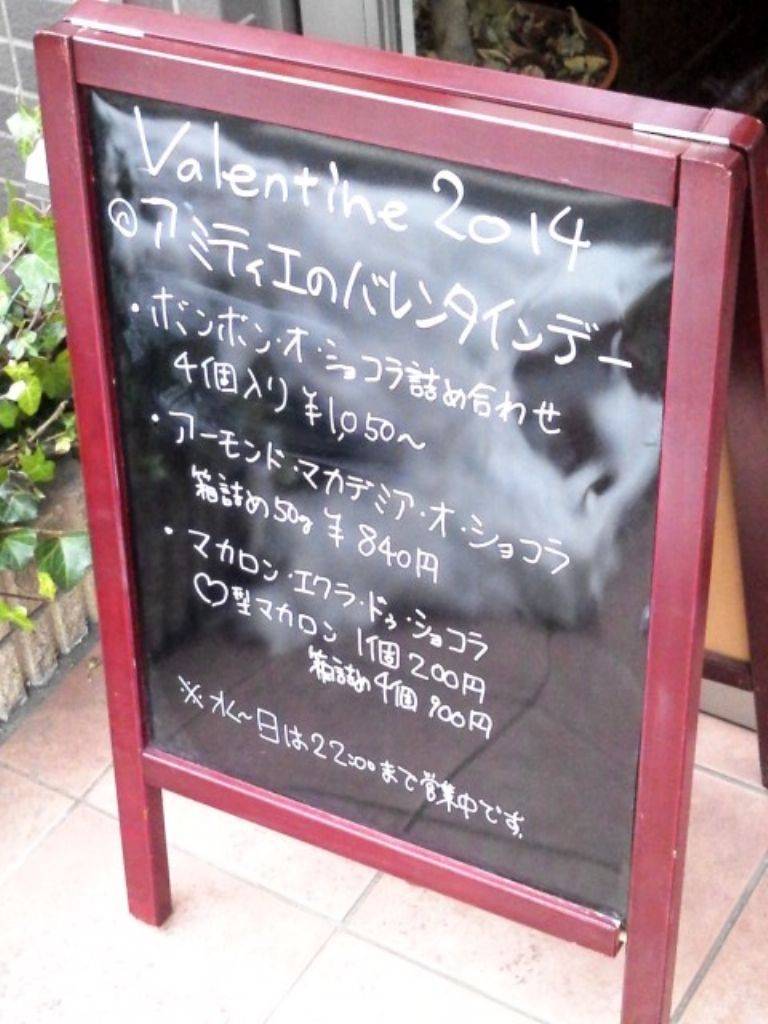 Valentine 2014
◎アミティエのバレンタインデー
・ボンボン・オ・ショコラ詰め合わせ
4個入り ¥1,050〜
・アーモンド・マカデミア・オ・ショコラ
箱詰め50g ¥840円
・マカロン・エクラ・ドゥ・ショコラ
♡型マカロン 1個200円
箱詰め4個 900円
※水〜日は22:00まで営業中です。